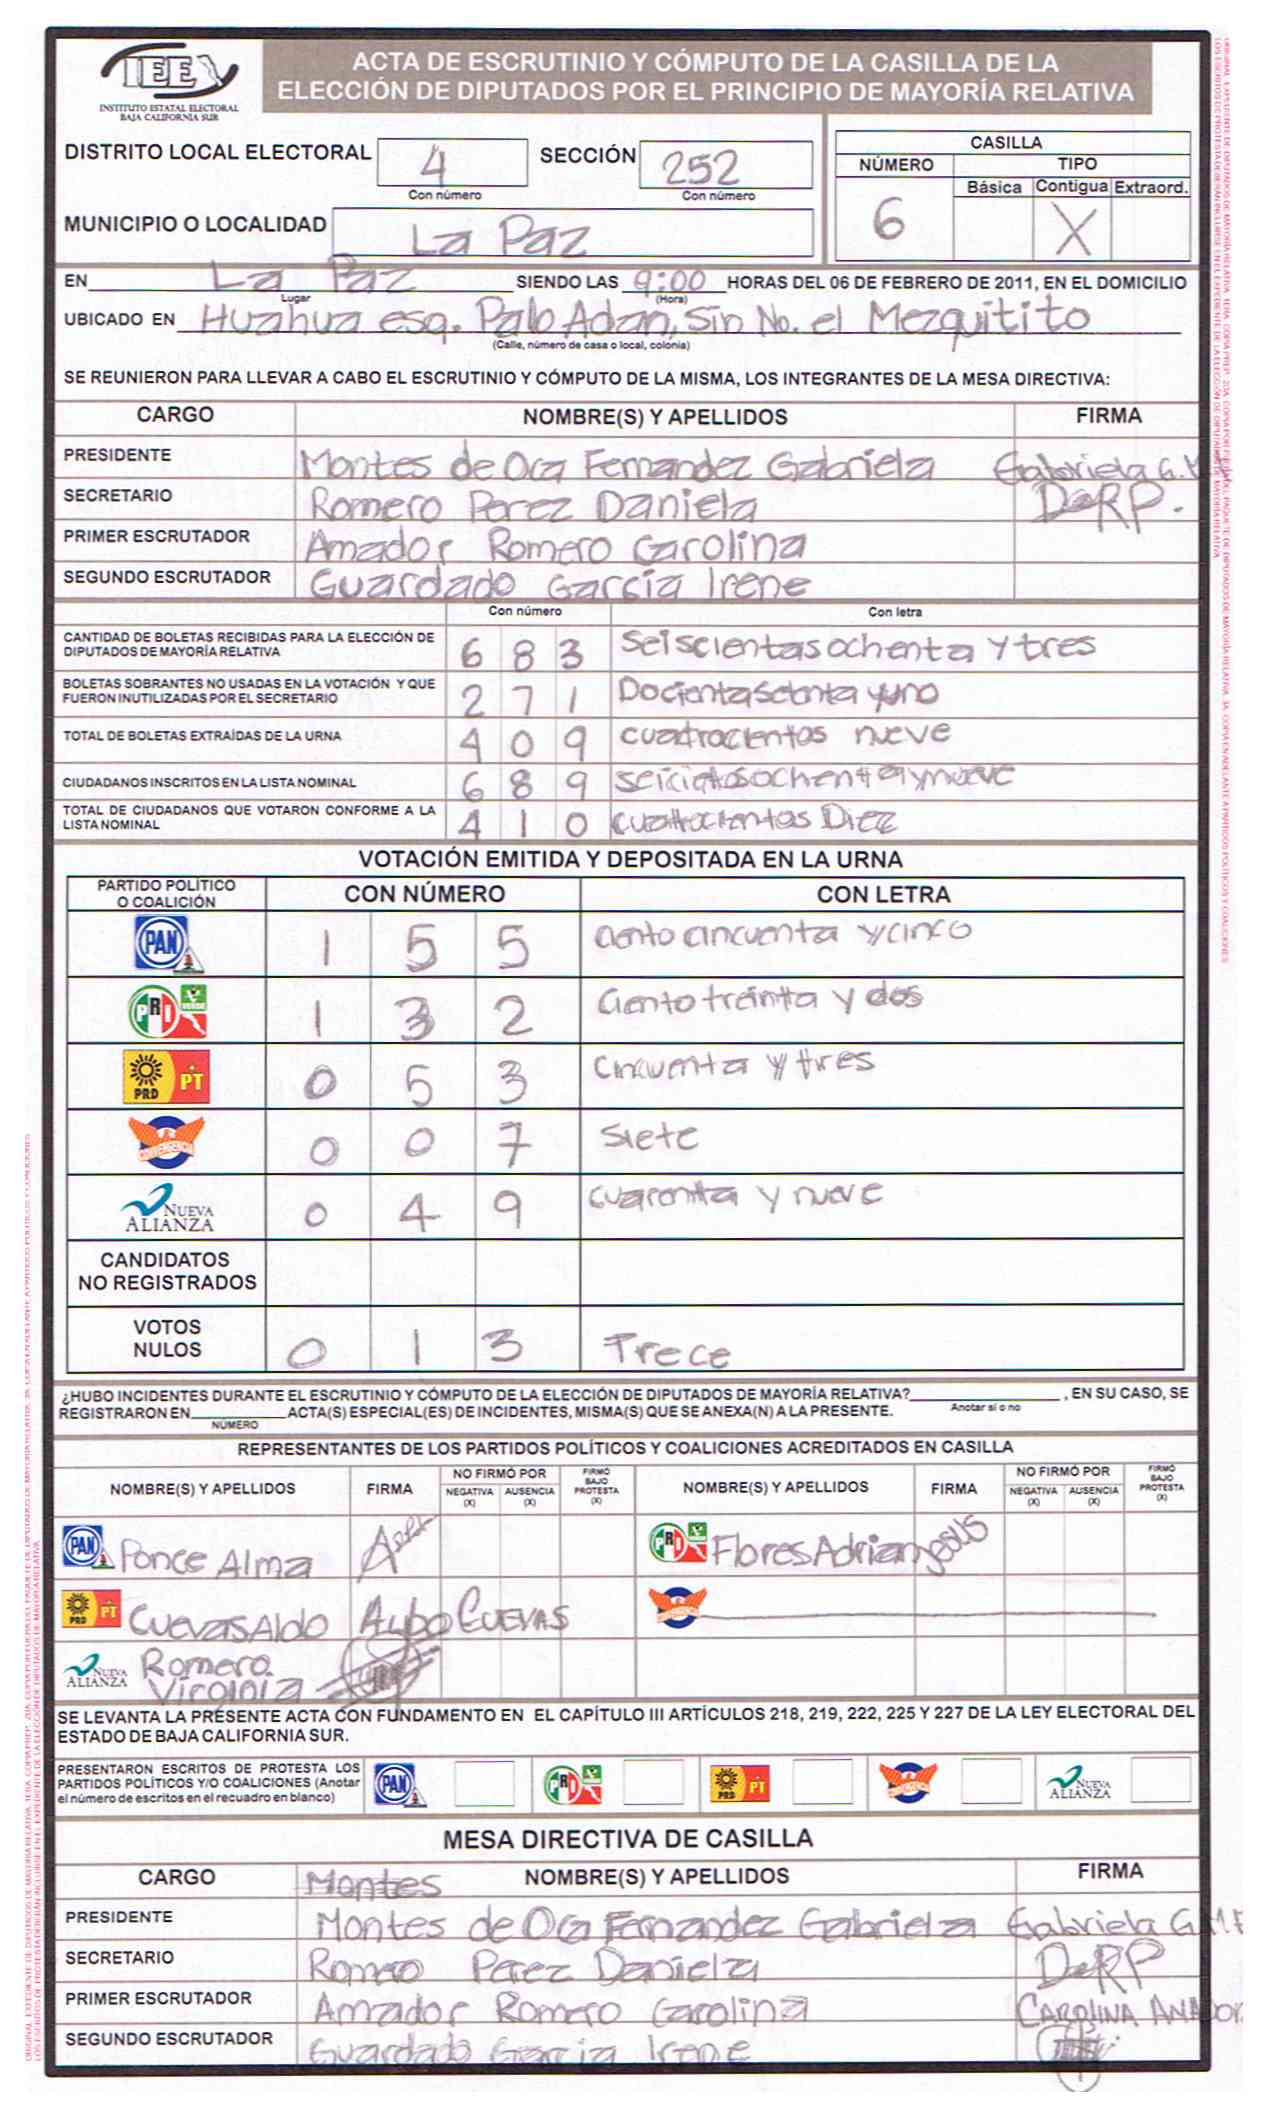 IEE
INSTITUTO ESTATAL ELECTORAL
BAJA CALIFORNIA SUR
ACTA DE ESCRUTINIO Y CÓMPUTO DE LA CASILLA DE LA
ELECCIÓN DE DIPUTADOS POR EL PRINCIPIO DE MAYORÍA RELATIVA
DISTRITO LOCAL ELECTORAL 4 SECCIÓN 252
Con número Con número
MUNICIPIO O LOCALIDAD La Paz
CASILLA
NÚMERO TIPO
Básica Contigua Extraord.
6 X
EN La Paz SIENDO LAS 9:00 HORAS DEL 06 DE FEBRERO DE 2011, EN EL DOMICILIO
Lugar (Hora)
UBICADO EN Huahua esq. Palo Adan, Sin No. el Mezquitito
(Calle, número de casa o local, colonia)
SE REUNIERON PARA LLEVAR A CABO EL ESCRUTINIO Y CÓMPUTO DE LA MISMA, LOS INTEGRANTES DE LA MESA DIRECTIVA:
CARGO NOMBRE(S) Y APELLIDOS FIRMA
PRESIDENTE Montes de Oca Fernandez Gabriela Gabriela G.
SECRETARIO Romero Perez Daniela DaRP.
PRIMER ESCRUTADOR Amador Romero Carolina
SEGUNDO ESCRUTADOR Guardado García Irene
Con número Con letra
CANTIDAD DE BOLETAS RECIBIDAS PARA LA ELECCIÓN DE
DIPUTADOS DE MAYORÍA RELATIVA 6 8 3 Seiscientas ochenta y tres
BOLETAS SOBRANTES NO USADAS EN LA VOTACIÓN Y QUE
FUERON INUTILIZADAS POR EL SECRETARIO 2 7 1
TOTAL DE BOLETAS EXTRAÍDAS DE LA URNA 4 0 9 cuatrocientos nueve
CIUDADANOS INSCRITOS EN LA LISTA NOMINAL 6 8 9
TOTAL DE CIUDADANOS QUE VOTARON CONFORME A LA
LISTA NOMINAL 4 1 0 cuatrocientos Diez
VOTACIÓN EMITIDA Y DEPOSITADA EN LA URNA
PARTIDO POLÍTICO
O COALICIÓN CON NÚMERO CON LETRA
PAN 1 5 5 ciento cincuenta y cinco
PRI VERDE 1 3 2 ciento treinta y dos
PRD PT 0 5 3 Cincuenta y tres
CONVERGENCIA 0 0 7 siete
NUEVA
ALIANZA 0 4 9 cuarenta y nueve
CANDIDATOS
NO REGISTRADOS
VOTOS
NULOS 0 1 3 Trece
¿HUBO INCIDENTES DURANTE EL ESCRUTINIO Y CÓMPUTO DE LA ELECCIÓN DE DIPUTADOS DE MAYORÍA RELATIVA? , EN SU CASO, SE
Anotar sí o no
REGISTRARON EN ACTA(S) ESPECIAL(ES) DE INCIDENTES, MISMA(S) QUE SE ANEXA(N) A LA PRESENTE.
NÚMERO
REPRESENTANTES DE LOS PARTIDOS POLÍTICOS Y COALICIONES ACREDITADOS EN CASILLA
NOMBRE(S) Y APELLIDOS FIRMA NO FIRMÓ POR NEGATIVA (X) AUSENCIA (X) FIRMÓ BAJO PROTESTA (X) NOMBRE(S) Y APELLIDOS FIRMA NO FIRMÓ POR NEGATIVA (X) AUSENCIA (X) FIRMÓ BAJO PROTESTA (X)
PAN Ponce Alma PRI Flores Adrian
PRD PT Cuevas Aldo Aldo CUEVAS
NUEVA ALIANZA Romero
Virginia
SE LEVANTA LA PRESENTE ACTA CON FUNDAMENTO EN EL CAPÍTULO III ARTÍCULOS 218, 219, 222, 225 Y 227 DE LA LEY ELECTORAL DEL
ESTADO DE BAJA CALIFORNIA SUR.
PRESENTARON ESCRITOS DE PROTESTA LOS
PARTIDOS POLÍTICOS Y/O COALICIONES (Anotar
el número de escritos en el recuadro en blanco) PAN PRI PRD PT NUEVA ALIANZA
MESA DIRECTIVA DE CASILLA
CARGO Montes NOMBRE(S) Y APELLIDOS FIRMA
PRESIDENTE Montes de Oca Fernandez Gabriela Gabriela G.M.F
SECRETARIO Romero Perez Daniela DaRP
PRIMER ESCRUTADOR Amador Romero Carolina CAROLINA AMADOR
SEGUNDO ESCRUTADOR Guardado Garcia Irene